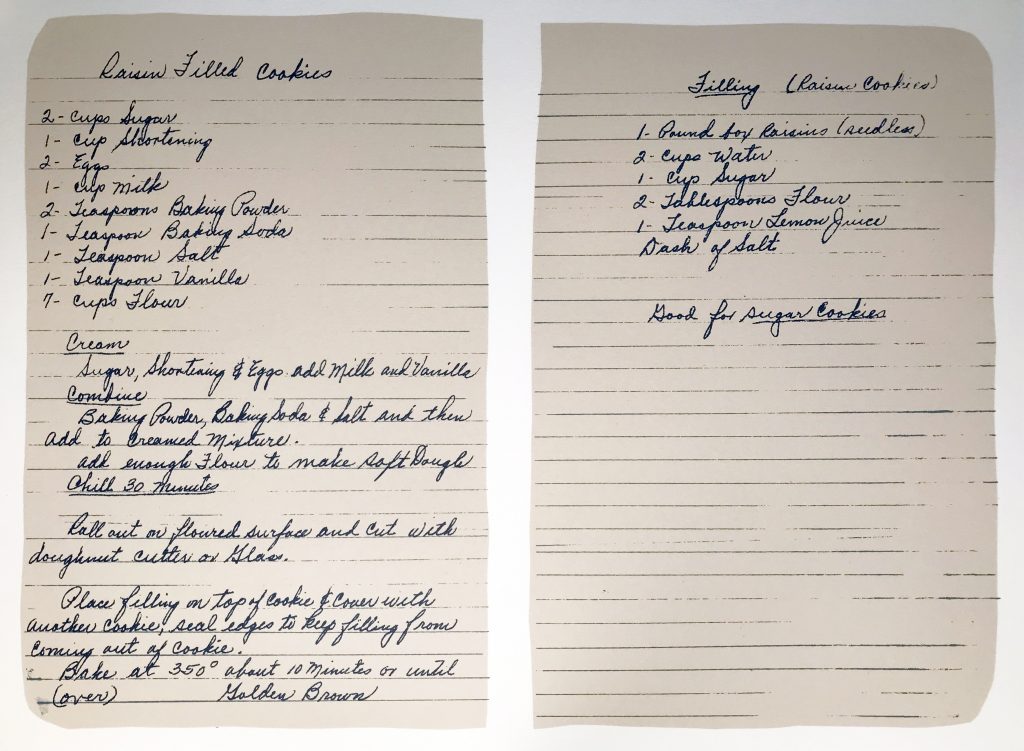 Raisin Filled Cookies
2- Cups Sugar
1- Cup Shortening
2- Eggs
1- Cup Milk
2- Teaspoons Baking Powder
1- Teaspoon Baking Soda
1- Teaspoon Salt
1- Teaspoon Vanilla
7- Cups Flour
Cream
Sugar, Shortening & Eggs add Milk and Vanilla
Combine
Baking Powder, Baking Soda & Salt and then
add to Creamed Mixture.
add enough Flour to make Soft Dough
Chill 30 Minutes
Roll out on floured surface and cut with
doughnut cutter or Glass.
Place filling on top of Cookie & Cover with
another Cookie, seal edges to keep filling from
Coming out of Cookie.
Bake at 350° about 10 Minutes or until
(over) Golden Brown
Filling (Raisin Cookies)
1- Pound box Raisins (seedless)
2- Cups Water
1- Cup Sugar
2- Tablespoons Flour
1- Teaspoon Lemon Juice
Dash of Salt
Good for Sugar Cookies